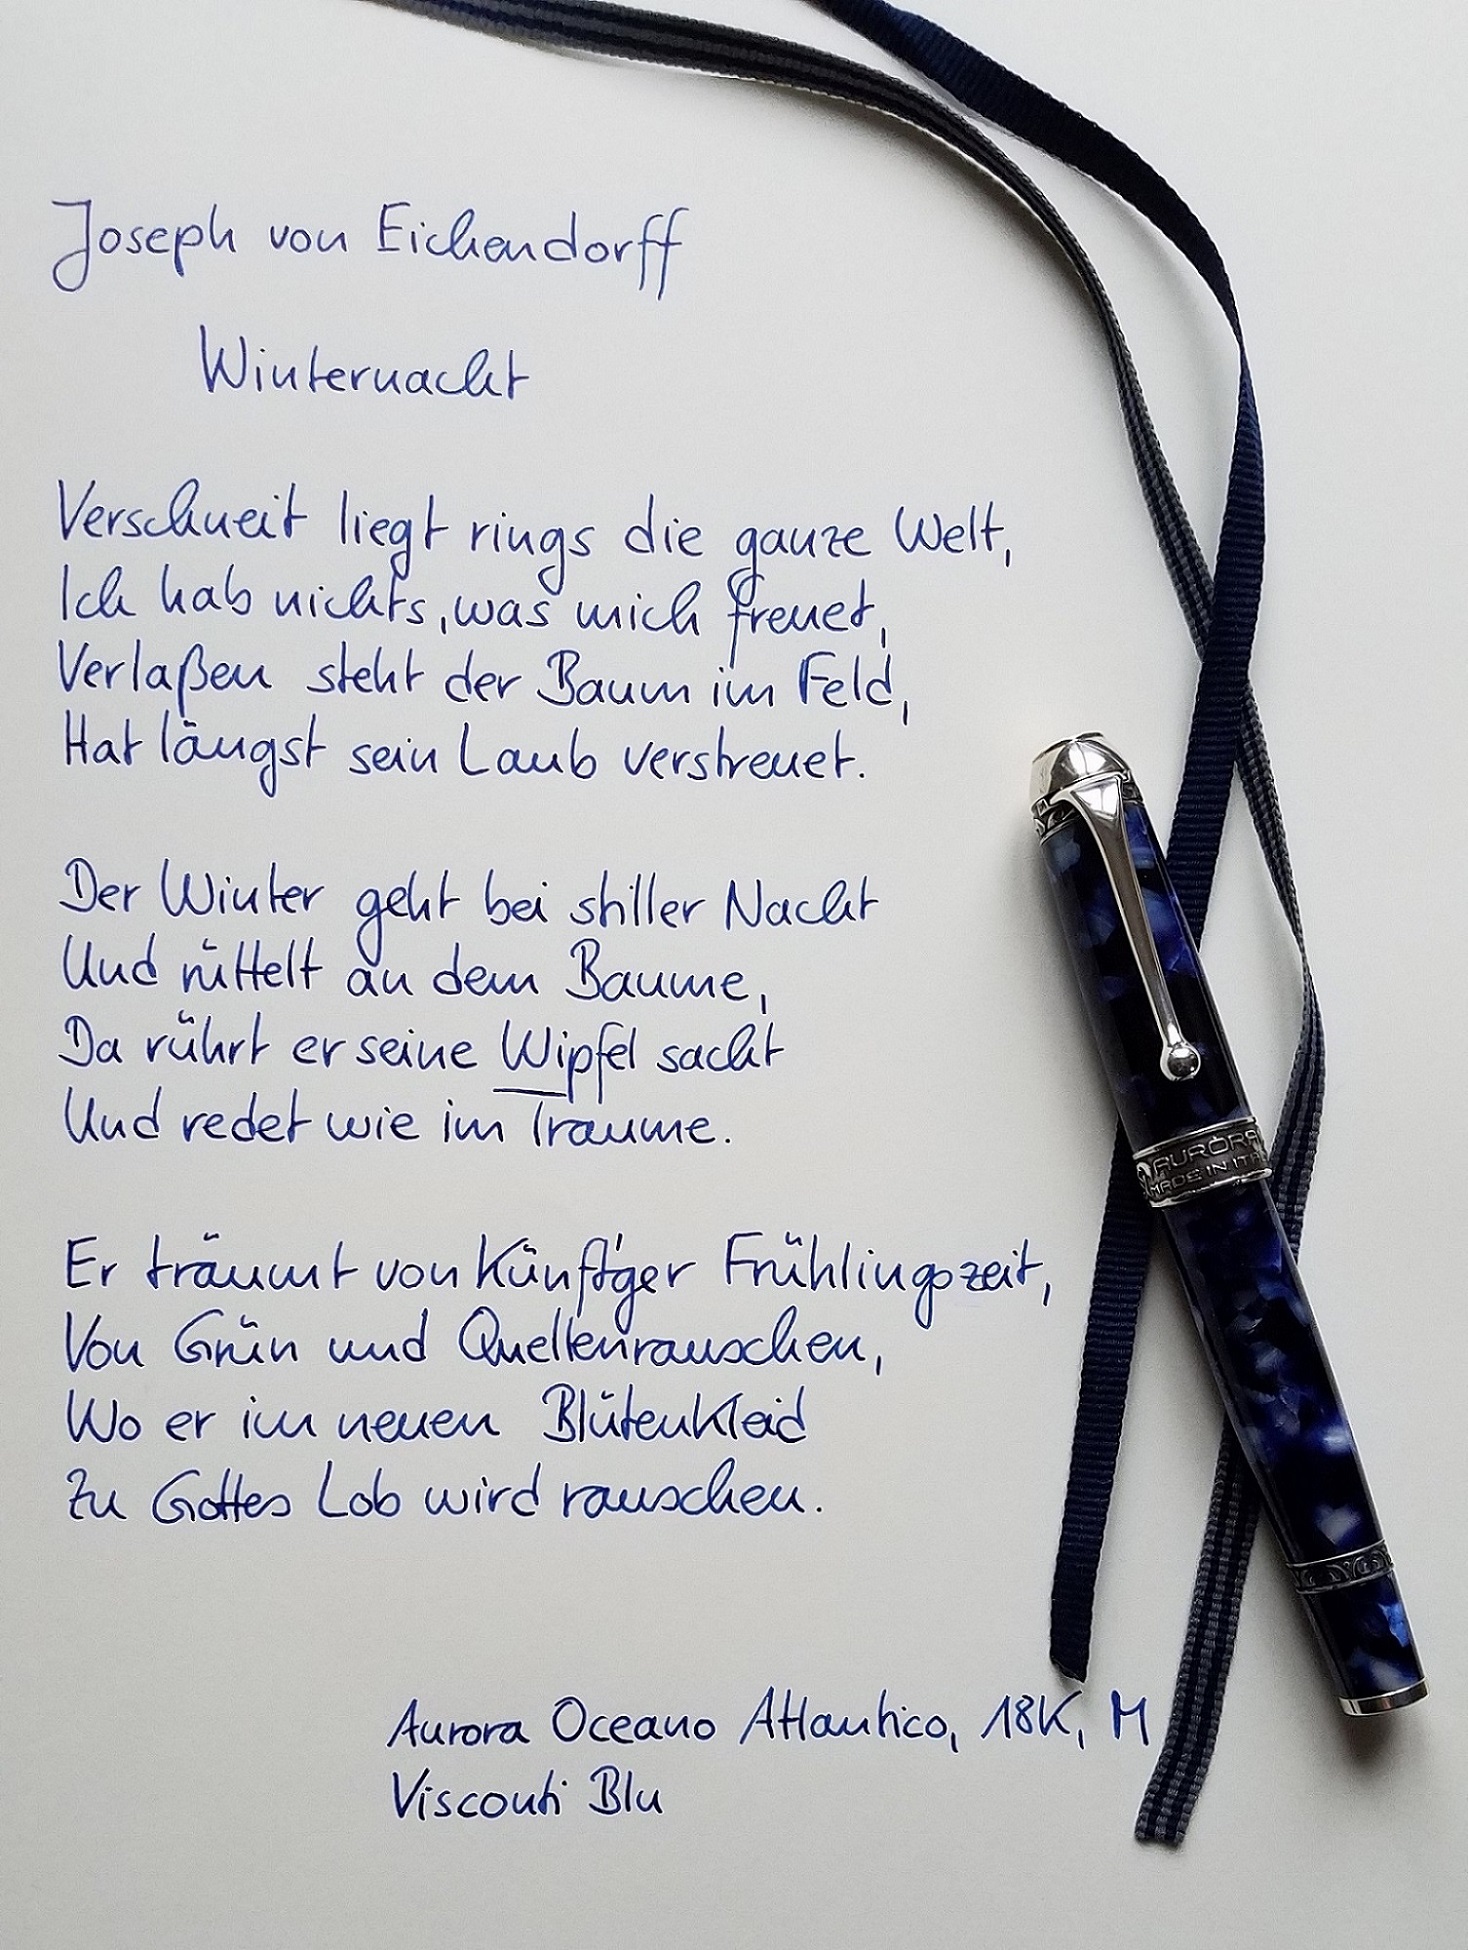 Joseph von Eichendorff
Winternacht
Verschneit liegt rings die ganze Welt,
Ich hab nichts, was mich freuet,
Verlaßen steht der Baum im Feld,
Hat längst sein Laub verstreuet.
Der Winter geht bei stiller Nacht
Und rüttelt an dem Baume,
Da rührt er seine Wipfel sacht
Und redet wie im Traume.
Er träumt von künft'ger Frühlingszeit,
Von Grün und Quellenrauschen,
Wo er im neuen Blütenkleid
Zu Gottes Lob wird rauschen.
Aurora Oceano Atlantico, 18K, M
Visconti Blu
AURORA
MADE IN ITA